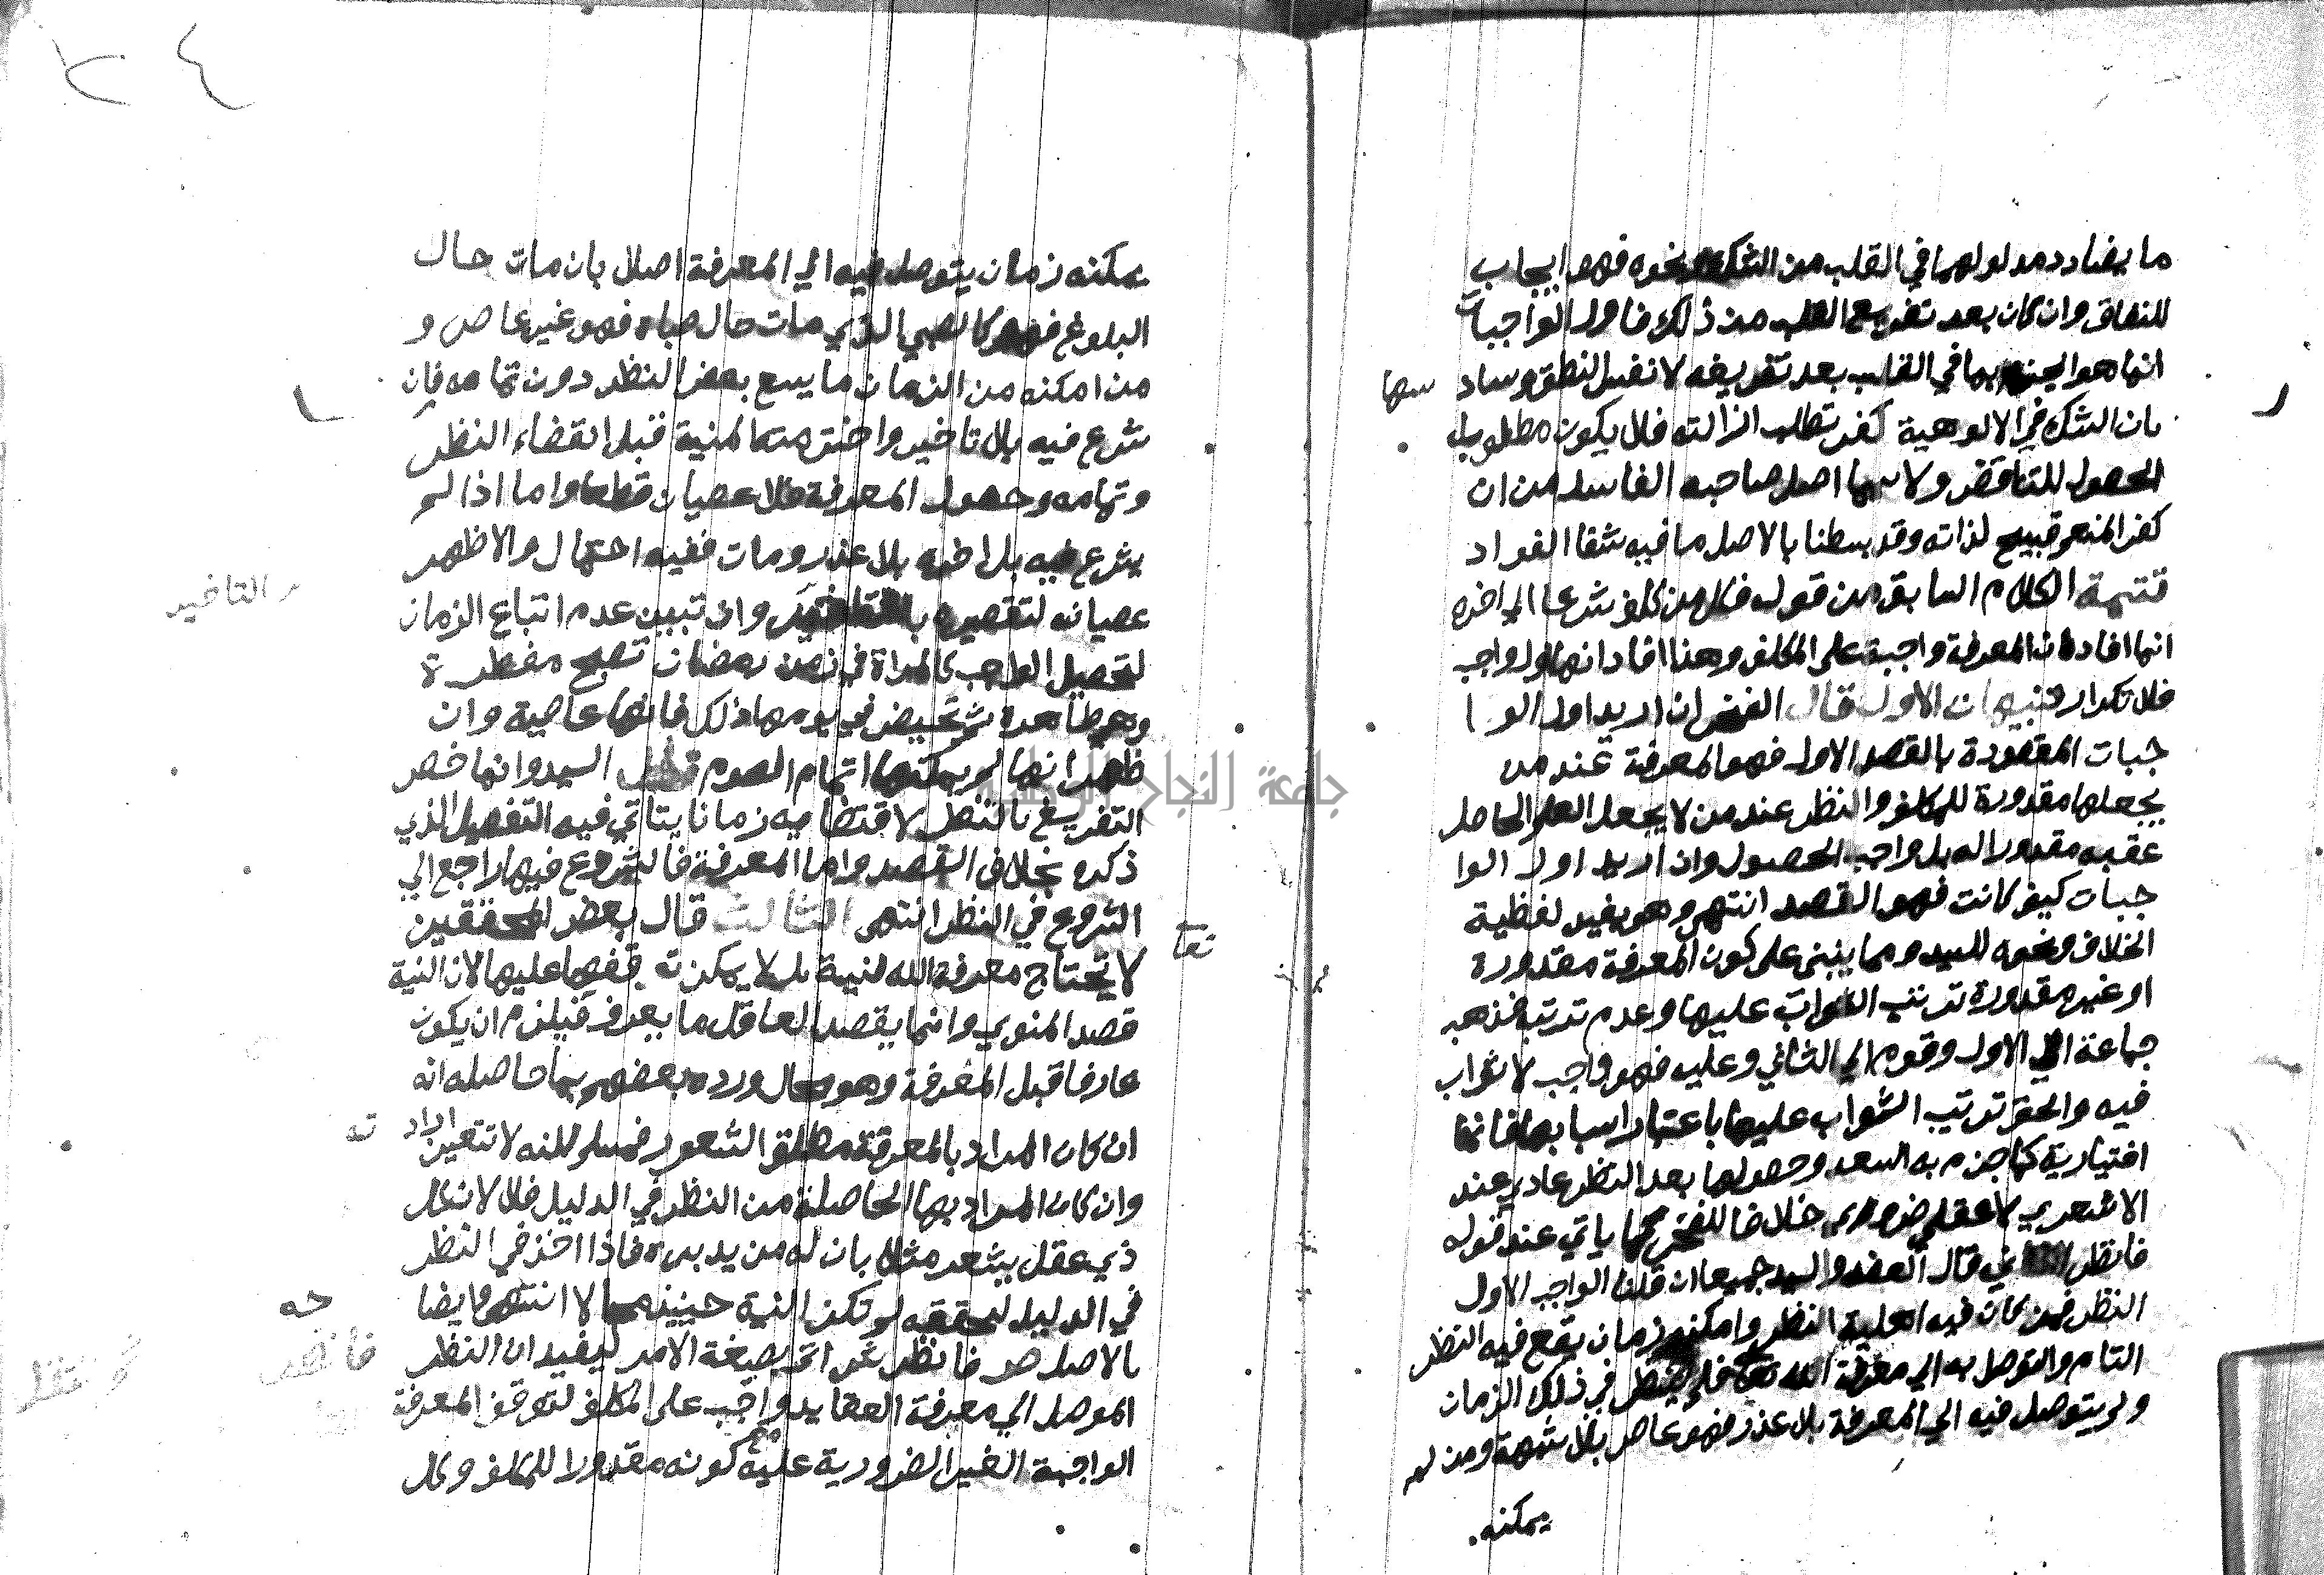 ما يضاد مدلولهما في القلب من الشك ونحوه فهو ايجاب
للنفاق وان كان بعد تفريغ القلب من ذلك فاول الواجبات
انما هو الجزم بما في القلب بعد تفريغه لا نفس النطق وساد
بان الشك في الالوهية كفر تطلب ازالته فلا يكون مطلوب
الحصول للتناقض ولا سيما اصل صاحبه الفاسد من ان
كفر المنعم قبيح لذاته وقد بسطنا بالاصل ما فيه شفا الفواد
تتمة الكلام السابق من قوله فكل من كلف شرعا الي اخره
انما افاد ان المعرفة واجبة على المكلف وهذا افاد انها اول واجب
فلا تكرار تنبيهات الاول قال الفخر ان اريد اول الوا
جبات المقصودة بالقصد الاول فهو المعرفة عند من
يجعلها مقدورة للمكلف والنظر عند من لا يجعل العلم الحاصل
عقبه مقدورا له بل واجب الحصول وان اريد اول الوا
جبات كيف كانت فهو القصد انتهى وهو يفيد لفظية
الخلاف ونحوه للسيد ومما ينبني على كون المعرفة مقدورة
او غير مقدورة ترتب الثواب عليها وعدم ترتبه فذهب
جماعة الي الاول وقوم الي الثاني وعليه فهو واجب لا ثواب
فيه والحق ترتيب الثواب عليها باعتبار اسبابها فانها
اختيارية كما جزم به السعد وحصولها بعد النظر عادي عند
الاشعري لا عقلي ضروري خلافا للفخر كما ياتي عند قوله
فانظر الثاني قال العضد والسيد جميعا ان قلنا الواجب الاول
النظر فمن كان فيه اهلية النظر وامكنه زمان يقع فيه النظر
التام والتوصل به الي معرفة الله تعا فلم ينظر في ذلك الزمان
ولم يتوصل فيه الي المعرفة بلا عذر فهو عاص بلا شبهة ومن لم
يمكنه
يمكنه زمان يتوصل فيه الي المعرفة اصلا بان مات حال
البلوغ فهو كالصبي الذي مات حال صباه فهو غير عاص و
من امكنه من الزمان ما يسع بعض النظر دون تمامه فان
شرع فيه بلا تاخير واخترمته المنية قبل انقضاء النظر
وتمامه وحصول المعرفة فلا عصيان قطعا واما اذا لم
يشرع فيه بل اخره بلا عذر ومات ففيه احتمال والاظهر
عصيانه لتقصيره بالتاخير وان تبين عدم اتساع الزمان
التاخير
لتحصيل الواجب كالمراة في زمن رمضان تصبح مفطرة
وهي طاهرة ثم تحيض في يومها ذلك فانها عاصية وان
ظهر انها لم يمكنها اتمام الصوم قال السيد وانما خص
التفريع بالنظر لاقتضايه زمانا يتاتي فيه التفصيل الذي
ذكره بخلاف القصد واما المعرفة فالشروع فيها راجع الي
الشروع في النظر انتهى الثالث قال بعض المحققين
لا تحتاج معرفة الله تعا لنية بل لا يمكن توقفها عليها لان النية
قصد المنوي وانما يقصد العاقل ما يعرف فيلزم ان يكون
عارفا قبل المعرفة وهو محال ورده بعضهم بما حاصله انه
ان كان المراد بالمعرفة مطلق الشعور فمسلم لكنه لا تتعين ارادته
وان كان المراد بها الحاصلة من النظر في الدليل فلا لان كل
ذي عقل يشعر مثلا بان له من يدبره فاذا اخذ في النظر
في الدليل ليحققه لم تكن النية حينئذ محالا انتهى وايضا
بالاصل ص فانظر ش اتى بصيغة الامر ليفيد ان النظر
الموصل الي معرفة العقايد واجب على المكلف لتوقف المعرفة
الواجبة الغير الضرورية عليه مع كونه مقدورا للمكلف وكل
جامعة النجاح الوطنية